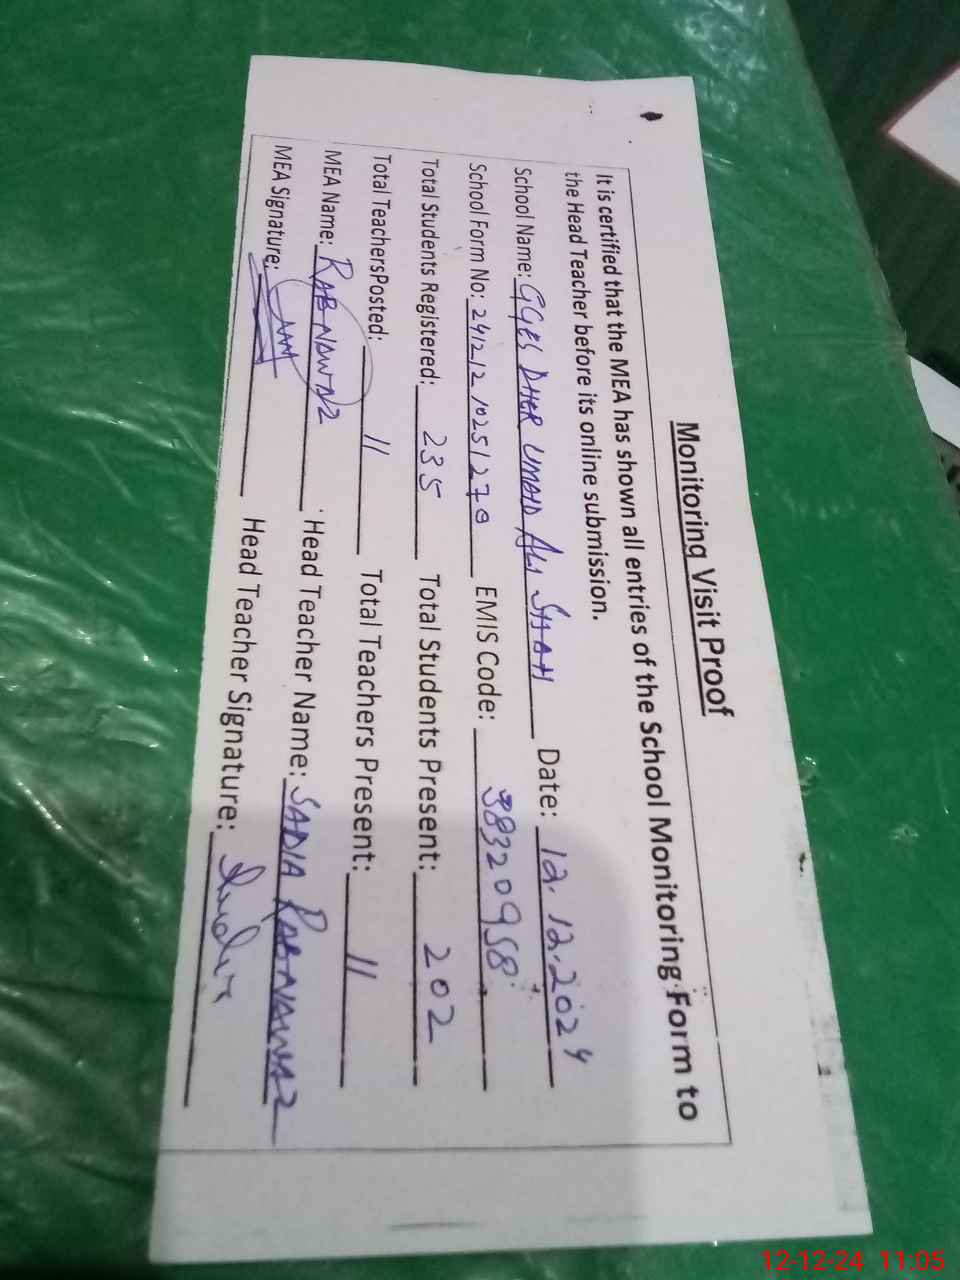 Monitoring Visit Proof
It is certified that the MEA has shown all entries of the School Monitoring Form to
the Head Teacher before its online submission.
School Name: GGES DHER UMAID ALI SHAH Date: 12.12.2024
School Form No: 24121210251270 EMIS Code: 38320958
Total Students Registered: 235 Total Students Present: 202
Total TeachersPosted: 11 Total Teachers Present: 11
MEA Name: RAB NAWAZ Head Teacher Name: SADIA RAB NAWAZ
MEA Signature: Head Teacher Signature:
12-12-24 11:05